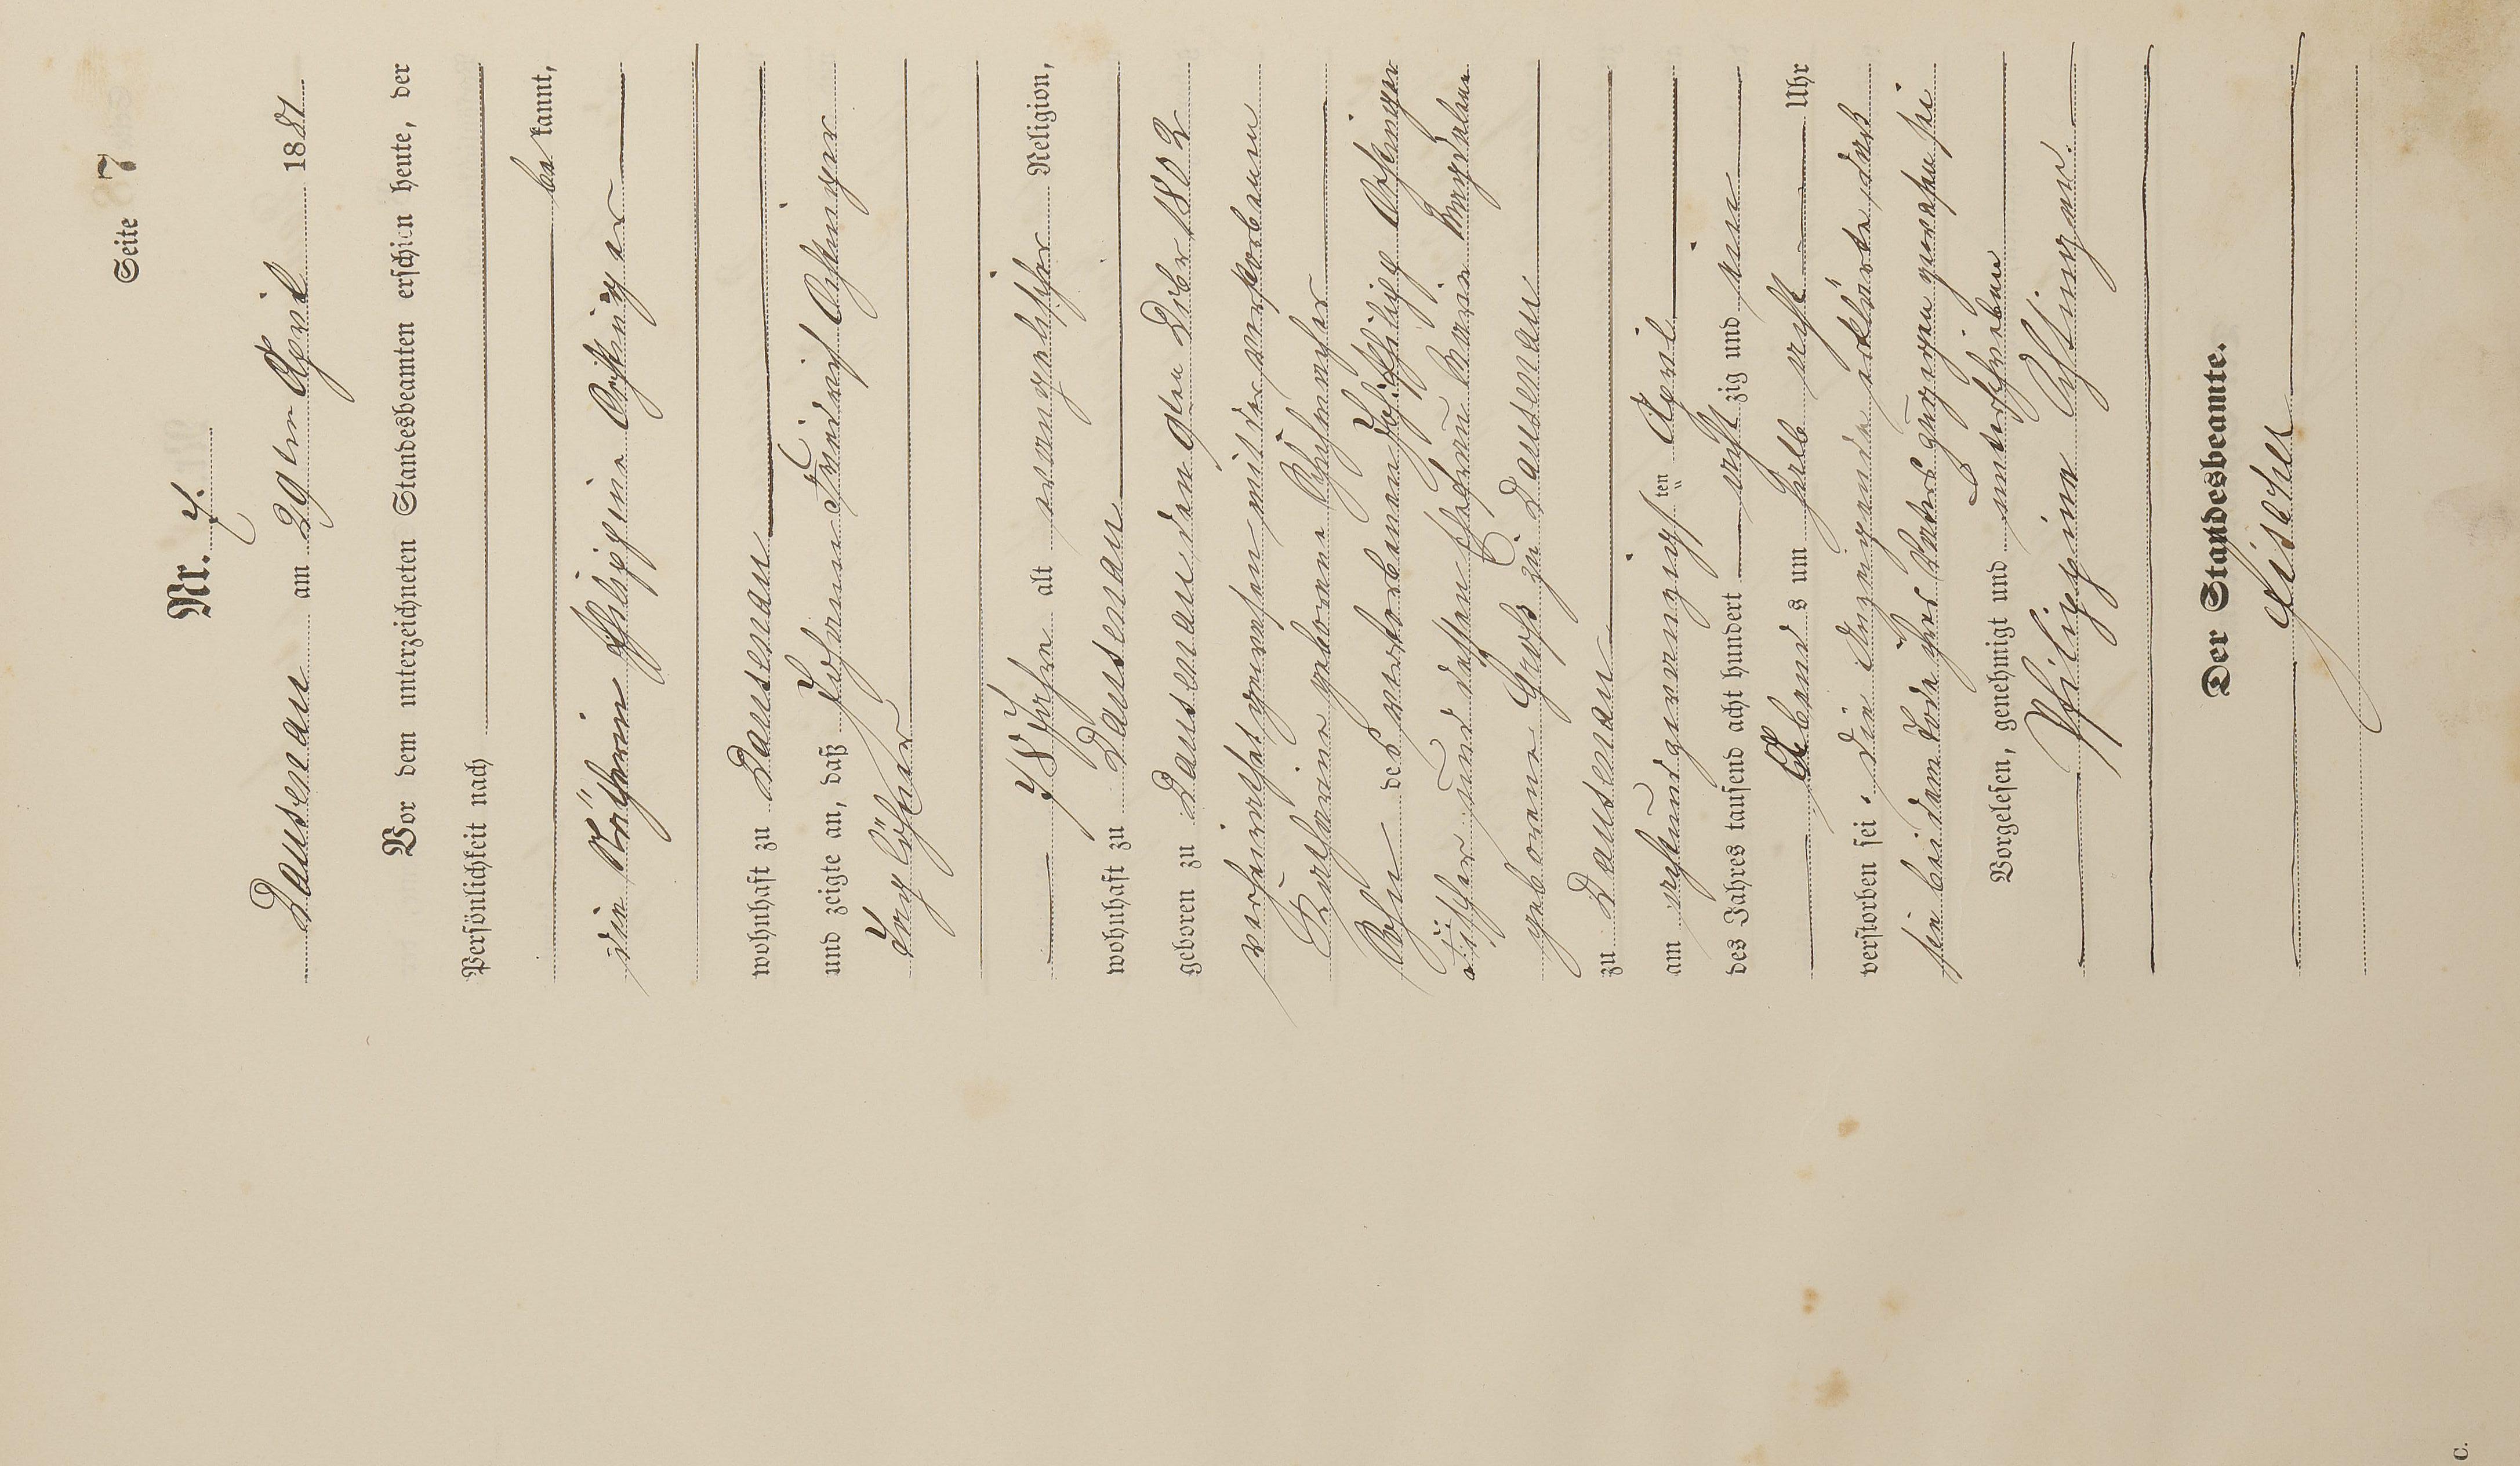 Seite 7
Nr. 7.
Dausenau am 29ten April 1881
Vor dem unterzeichneten Standesbeamten erschien heute, der
Persönlichkeit nach
be kannt,
die Nätherin Philippine
wohnhaft zu Dausenau
und zeigte an, daß Johann Friedrich
Taglöhner
78 Jahre alt evangelischer Religion,
wohnhaft zu Dausenau
geboren zu Dausenau den 9ten 1802
verheirathet gewesen mit der verstorbenen
Katharine geborene
Sohn des verstorbenen Philipp
und dessen Ehefrau Maria Magdalena
geborene Groß zu Dausenau
zu Dausenau
am achtundzwanzigsten April
des Jahres tausend acht hundert acht zig und ein
Abend s um halb acht Uhr
verstorben sei. die Anzeigende erklärte daß
sie bei dem Tode ihres Vaters zugegen gewesen sei
Vorgelesen, genehmigt und unterschrieben
Philippine
Der Standesbeamte.
C.